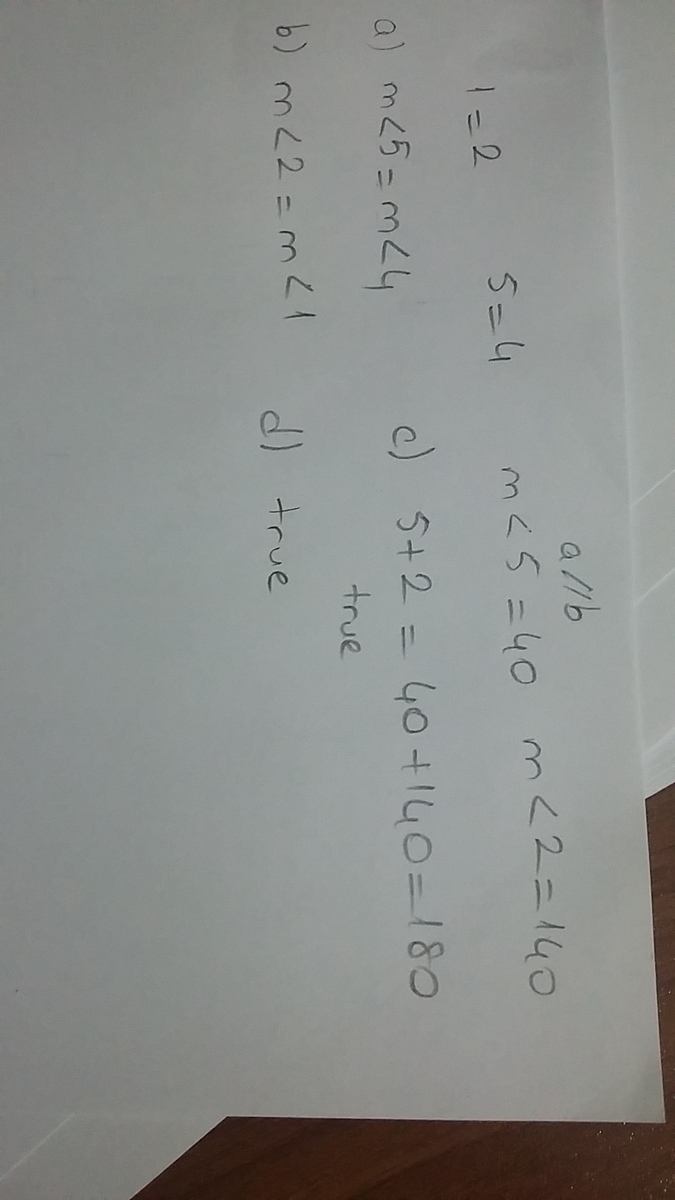 a//b
1=2 5=4 m<5=40 m<2=140
a) m<5=m<4 c) 5+2=40+140=180
true
b) m<2=m<1 d) true